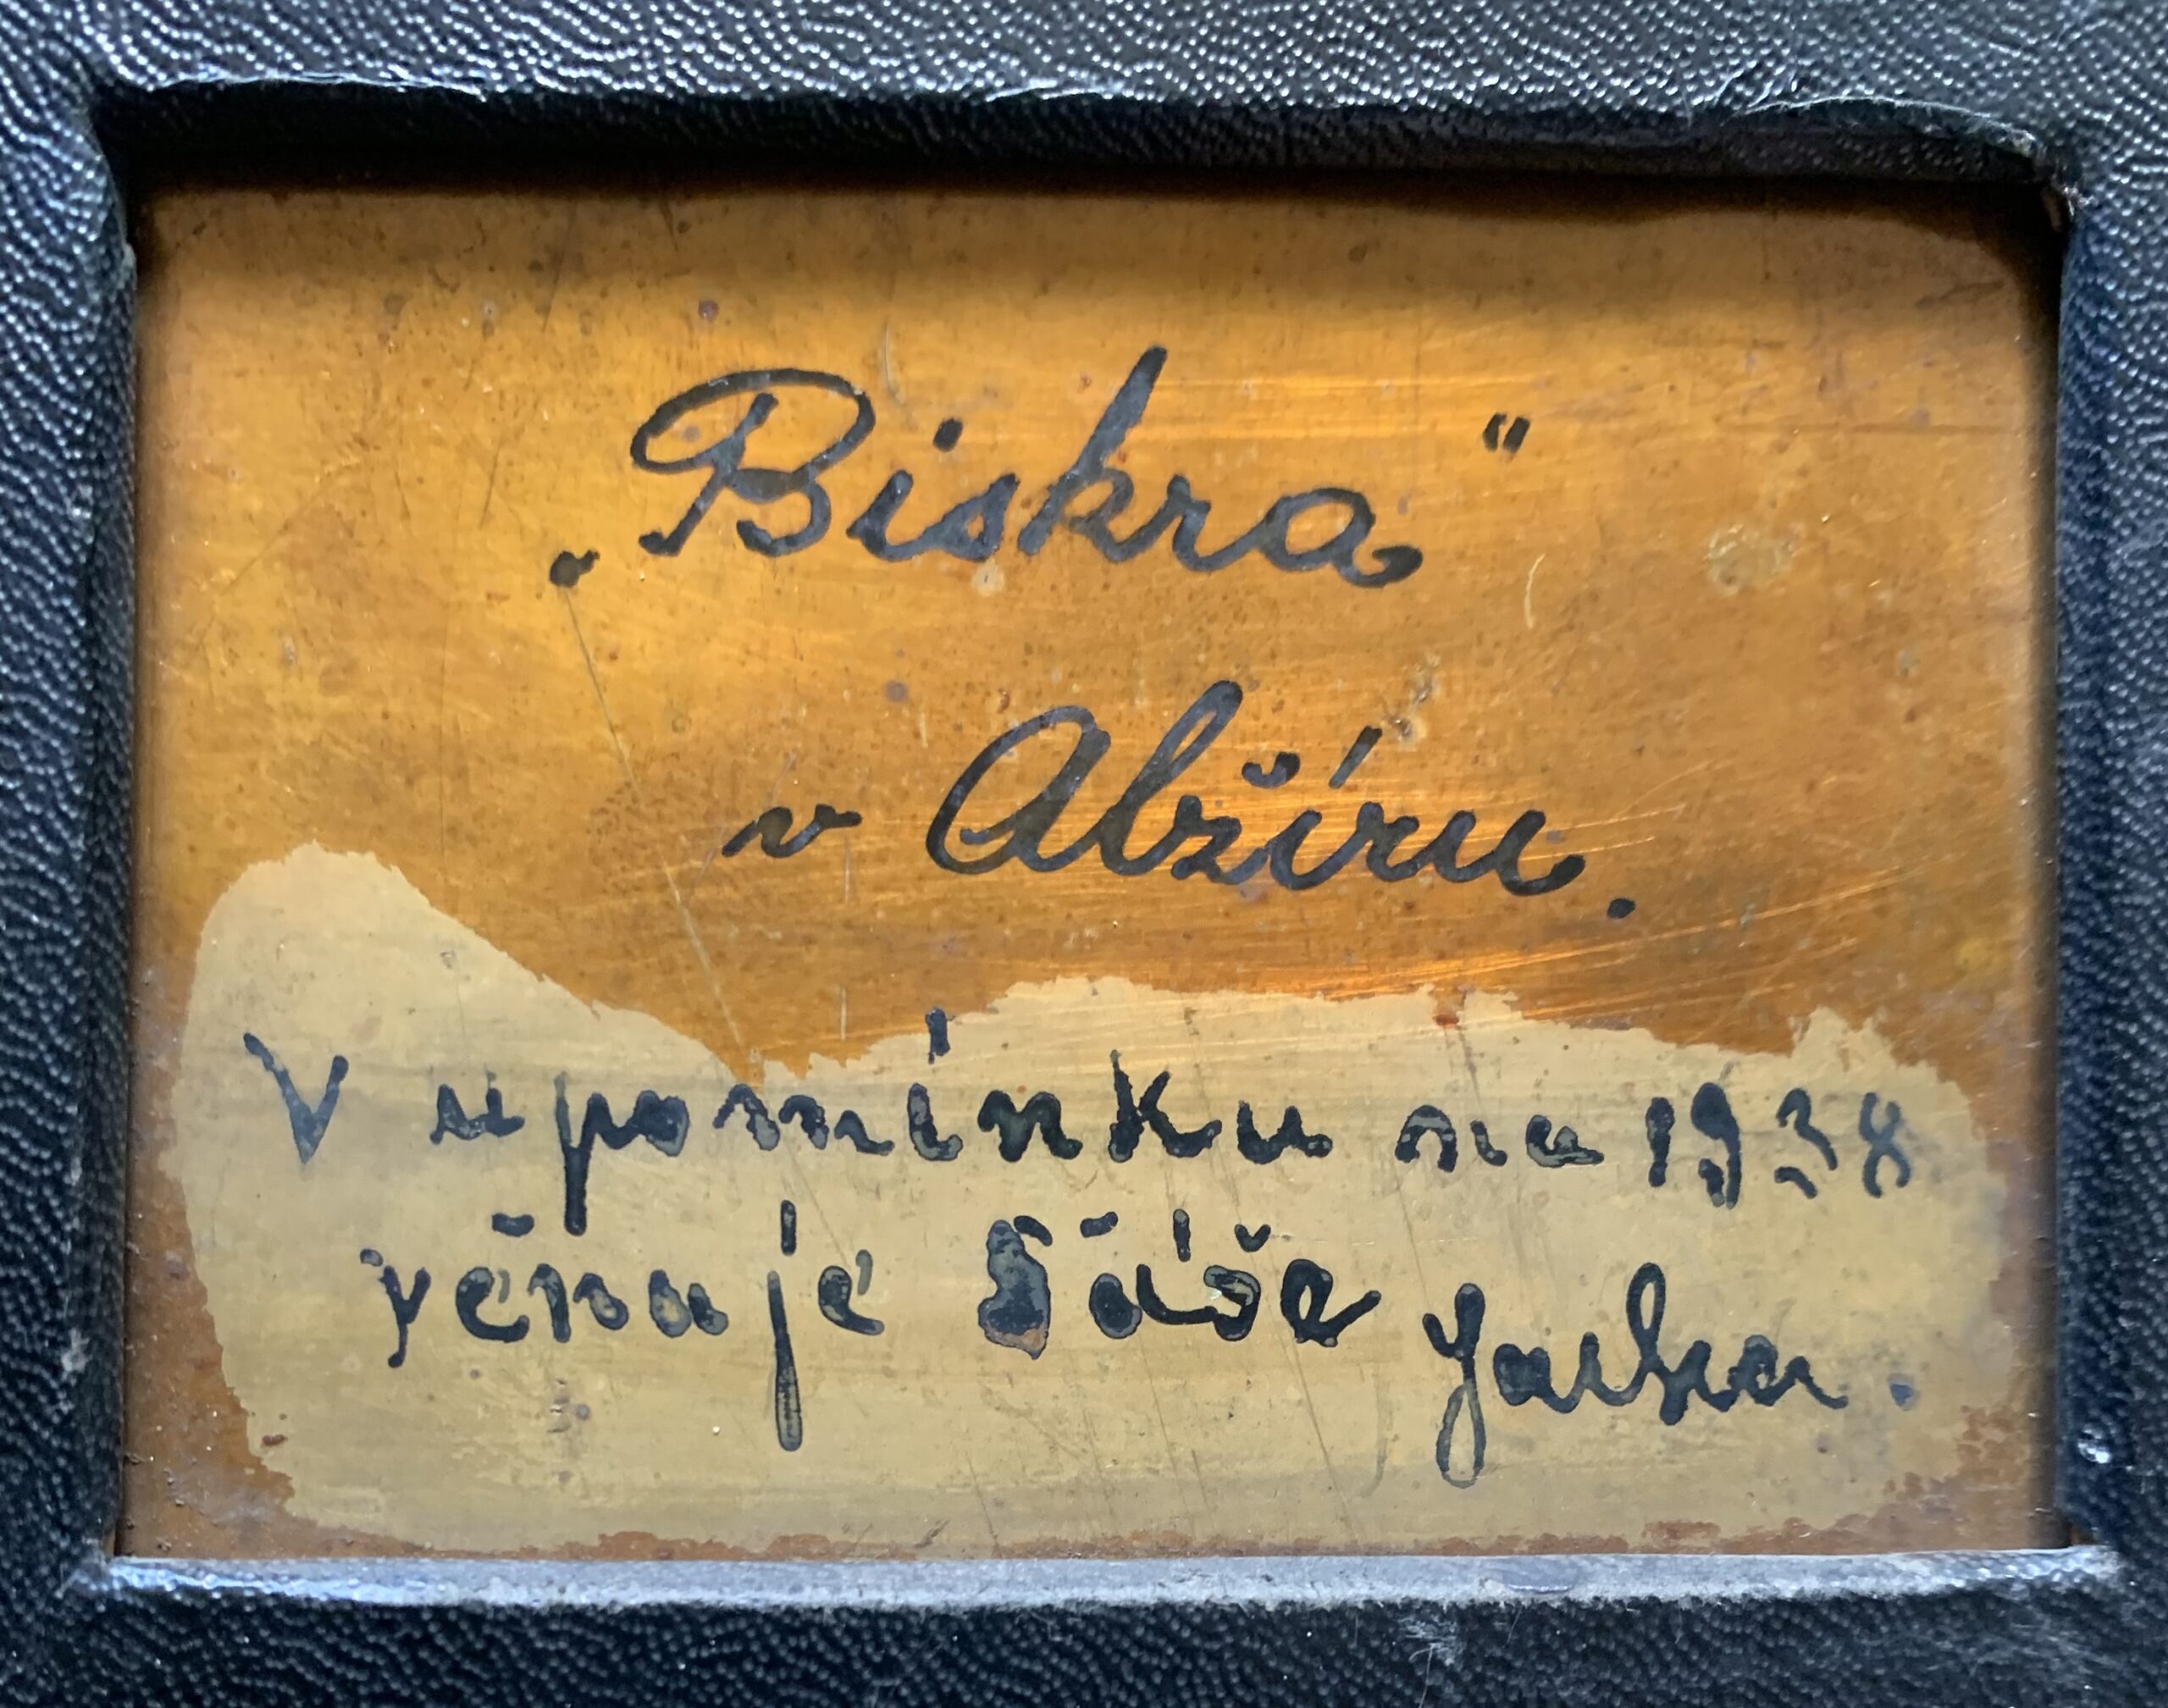 „Biskra"
v Alžíru.
V upomínku na 1938
věnuje Sáše Jarka.